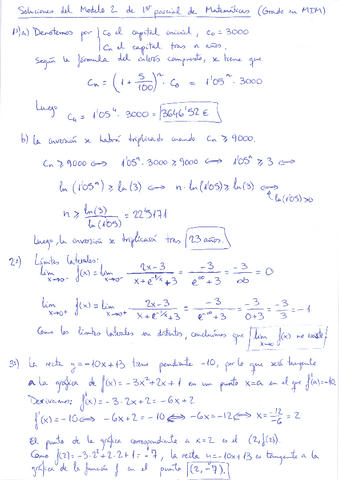 Soluciones del Modelo 2 de 1er parcial de Matemáticas (Grado en MIM)
1º) a) Denotemos por { C0 el capital inicial, C0 = 3000
Cn el capital tras n años.
Según la fórmula del interés compuesto, se tiene que
Cn = (1 + 5/100)^n · C0 = 1'05^n · 3000
Luego
C4 = 1'05^4 · 3000 = 3646'52 €
b) La inversión se habrá triplicado cuando Cn ≥ 9000.
Cn ≥ 9000 ⟺ 1'05^n · 3000 ≥ 9000 ⟺ 1'05^n ≥ 3 ⟺
ln(1'05^n) ≥ ln(3) ⟺ n · ln(1'05) ≥ ln(3) ⟺
ln(1'05)>0
n ≥ ln(3)/ln(1'05) = 22'5171
Luego, la inversión se triplicará tras 23 años.
2º) Límites laterales:
lim x→0- f(x) = lim x→0- (2x-3)/(x+e^(-1/x)+3) = -3/(e^∞+3) = -3/∞ = 0
lim x→0+ f(x) = lim x→0+ (2x-3)/(x+e^(-1/x)+3) = -3/(e^-∞+3) = -3/(0+3) = -3/3 = -1
Como los límites laterales son distintos, concluimos que lim x→0 f(x) no existe
3º) La recta y = -10x+13 tiene pendiente -10, por lo que será tangente
a la gráfica de f(x) = -3x²+2x+1 en un punto x=a en el que f'(a)=-10.
Derivamos: f'(x) = -3·2x+2 = -6x+2
f'(x) = -10 ⟺ -6x+2 = -10 ⟺ -6x = -12 ⟺ x = -12/-6 = 2
El punto de la gráfica correspondiente a x=2 es el (2, f(2)).
Como f(2) = -3·2²+2·2+1 = -7, la recta y=-10x+13 es tangente a la
gráfica de la función f en el punto (2, -7).